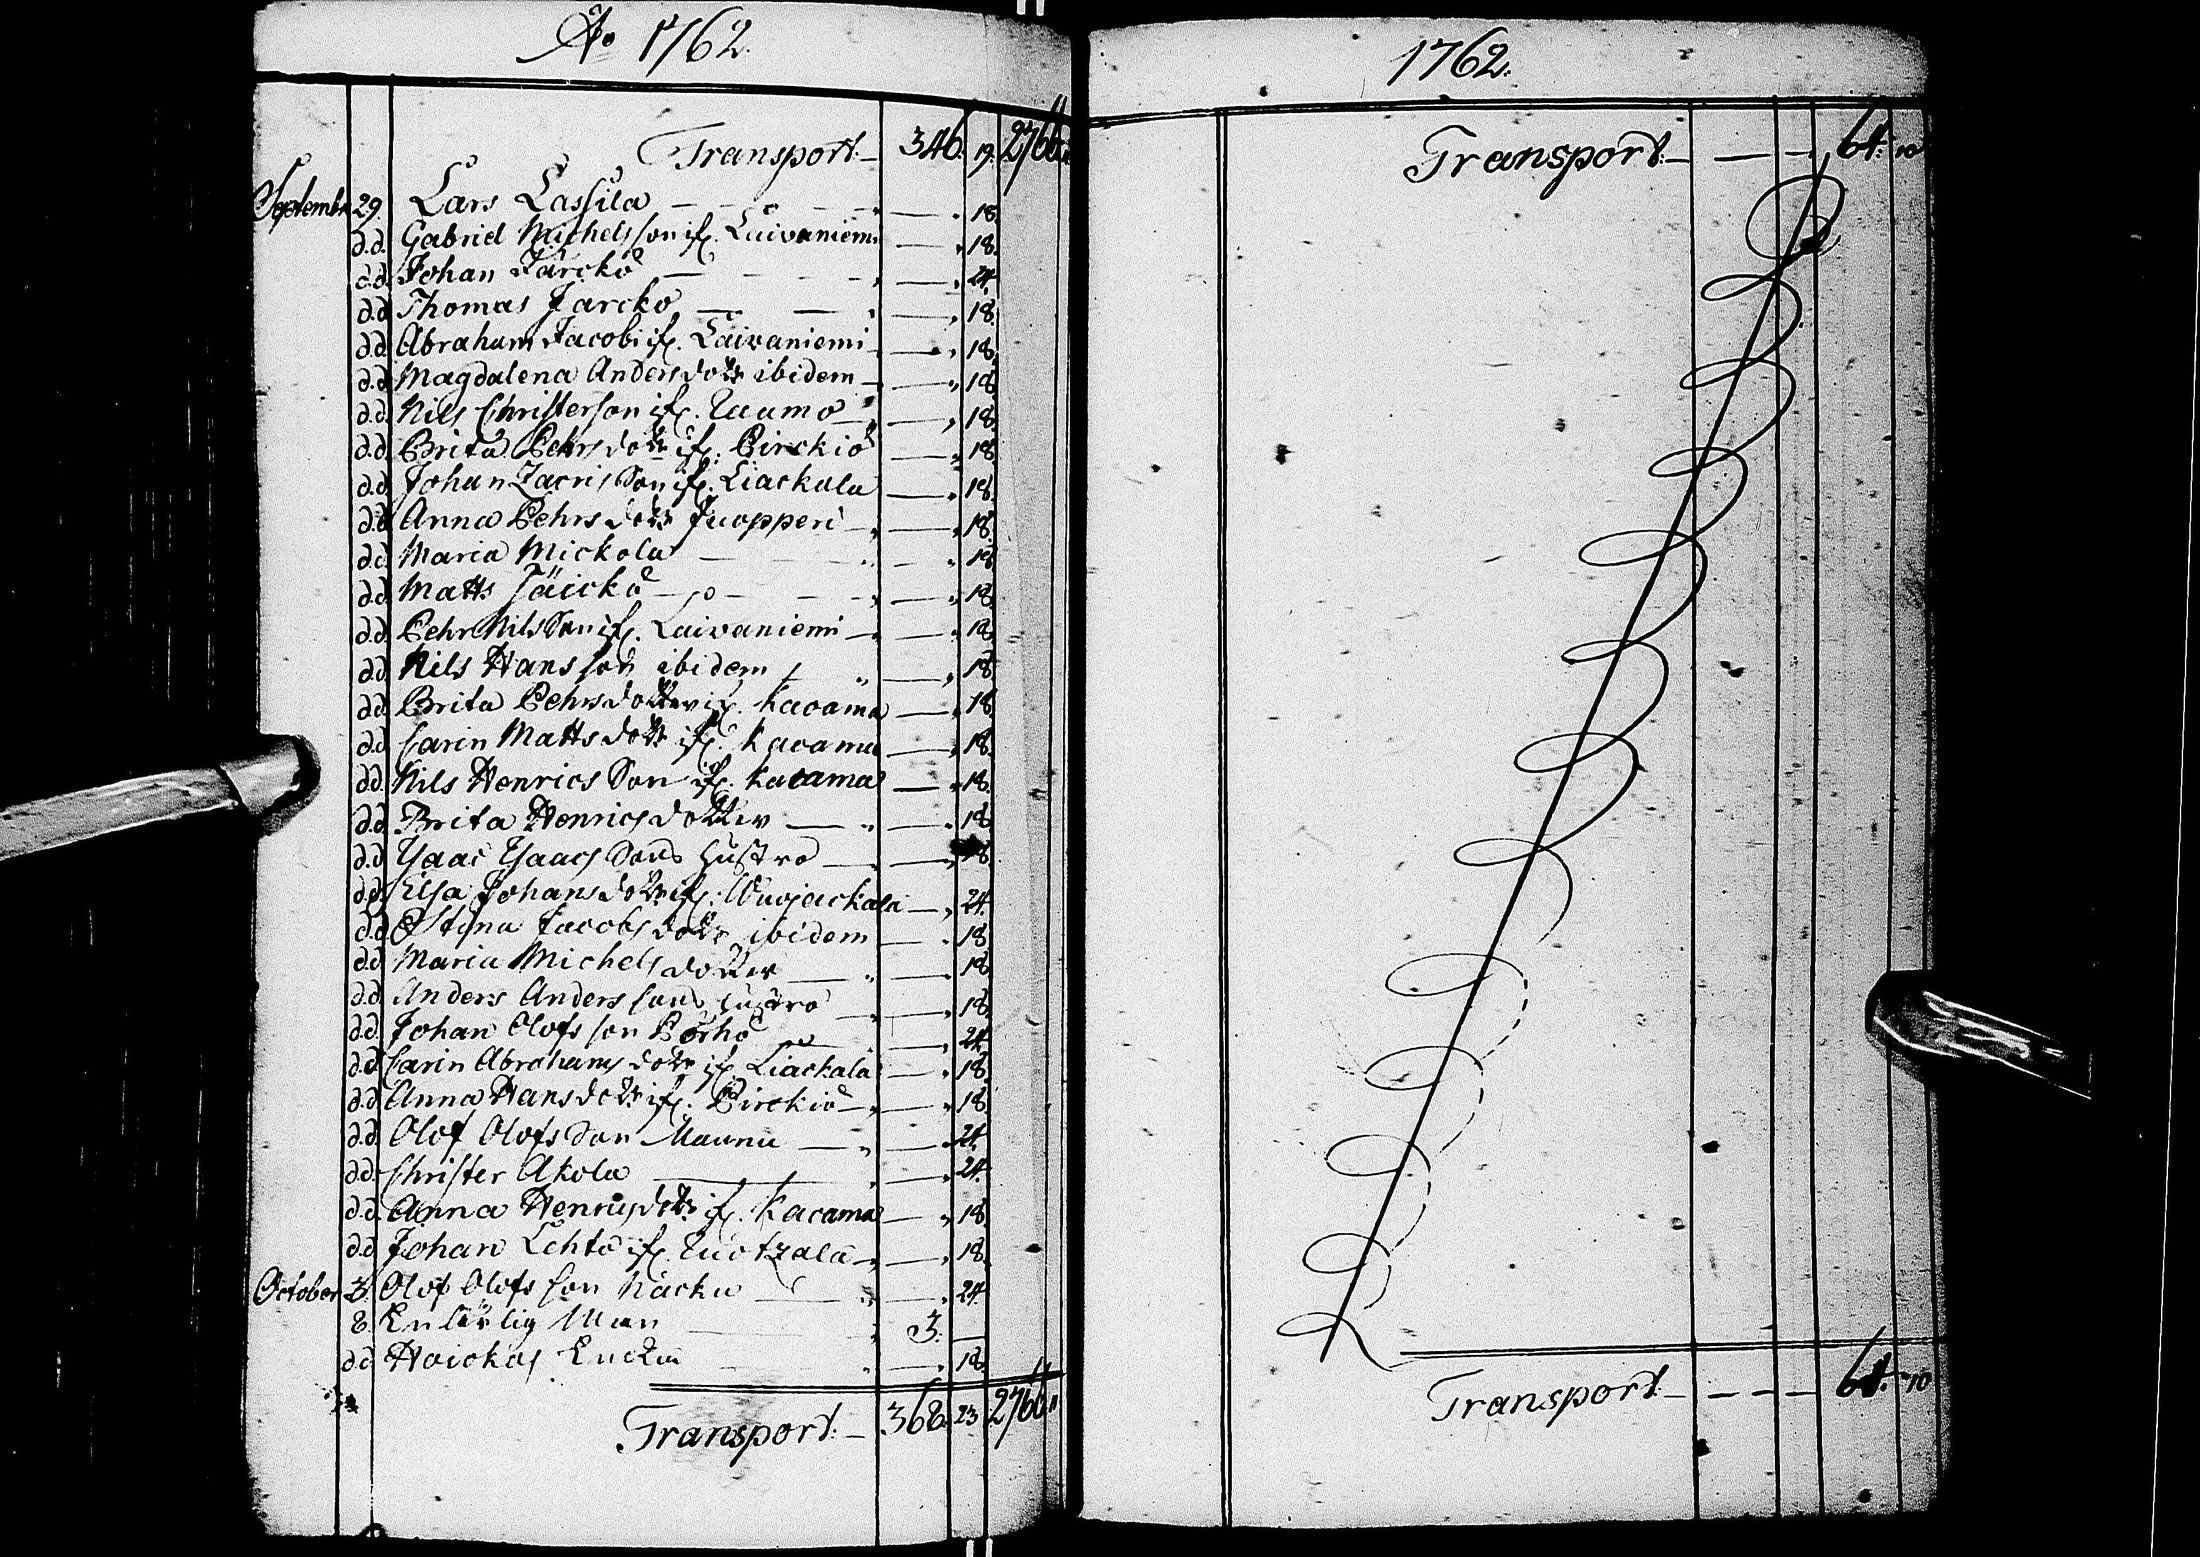 Ao 1762.
Transport:— 346. 19. 2766
Septembr. 29. Lars Lassila — — 18.
d.d. Gabriel Michelsson if. Laivaniemi — 18.
d.d. Johan Järckö — — 24.
d.d. Thomas Jarcko — — 18.
d.d. Abraham Jacobi if. Laivaniemi — 18.
d.d. Magdalena Andersdottr ibidem — 18.
d.d. Nils Christerson if. Raumo — 18.
d.d. Brita Pehrsdottr if. Pirckiö — 18.
d.d. Johan Zacrisson if. Liackala — 18.
d.d. Anna Pehrsdottr Juopperi — 18.
d.d. Maria Mickola — — 18
d.d. Matts Jäickö — — 18.
d.d. Pehr Nilsson if. Laivaniemi — 18.
d.d. Nils Hansson ibidem — 18.
d.d. Brita Pehrsdotter if. Kaoama — 18.
d.d. Carin Mattsdottr if. Kaoama — 18.
d.d. Nils Henricsson if. Kacama — 18.
d.d. Brita Henricsdotter — — 18
d.d. Ysaac Ysaacssons hustro — 18
d.d. Elsa Johansdottr if. Wuojackala — 24.
d.d. Stina Jacobsdottr ibidem — 18
d.d. Maria Michelsdotter — 18
d.d. Anders Anderssons hustro — 18.
d.d. Johan Olofsson Pörhö — 24.
d.d. Carin Abrahamsdottr if. Liackala — 18.
d.d. Anna Hansdottr if. Pirckiö — 18.
d.d. Olof Olofsson Maunu — 24.
d.d. Christer Akola — 24.
d.d. Anna Henricsdottr if. Kacama — 18.
d.d. Johan Lehto if. Ruotzala — 18.
October 3. Olof Olofsson Näcku — 24.
8. En lärlig Man — 3. —
d.d. Hoickas Enckia — 18
Transport:— 368. 23 2766
1762.
Transport:— — — 64. 10
Transport:— — — — 64. 10